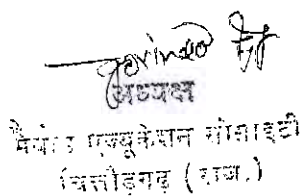 Govind
अध्यक्ष
एज्यूकेशन सोसाइटी
चित्तौड़गढ़ (राज.)